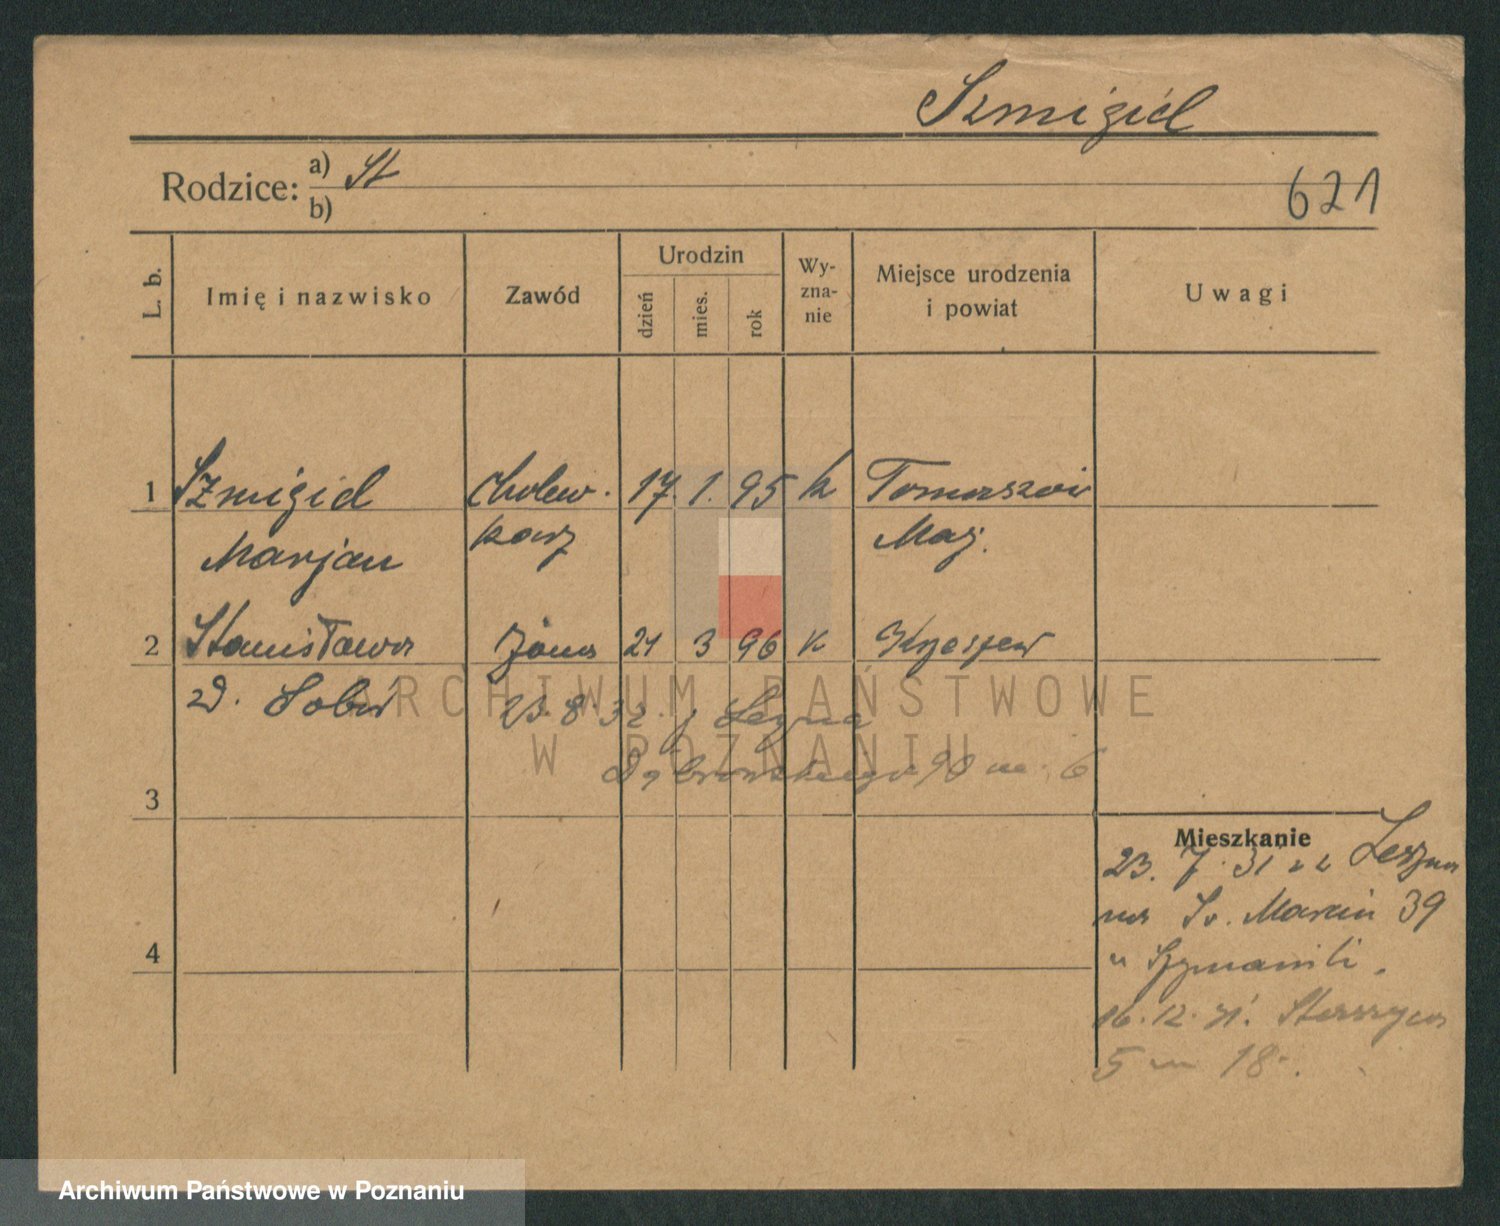 Szmigiel
Rodzice: a) St
b)
621
L. b.
Imię i nazwisko
Zawód
Urodzin
dzień
mies.
rok
Wy-
zna-
nie
Miejsce urodzenia
i powiat
Uwagi
1 Szmigiel Cholew- 17. 1. 95 k Tomaszów
Marjan karz Maz.
2 Stanisława żona 21 3 96 k
z d.
23. 8. 32 j Leszna
Dąbrowskiego 90 m. 6
3
4
Mieszkanie
23. 7. 31 z Leszna
na Św. Marcin 39
u
16. 12. 31.
5 m 18.
ARCHIWUM PAŃSTWOWE
W POZNANIU
Archiwum Państwowe w Poznaniu